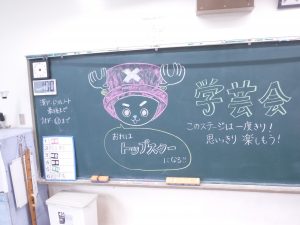 学芸会
このステージは一度きり!
思いっきり楽しもう!
おれは
トップスター
になる!!